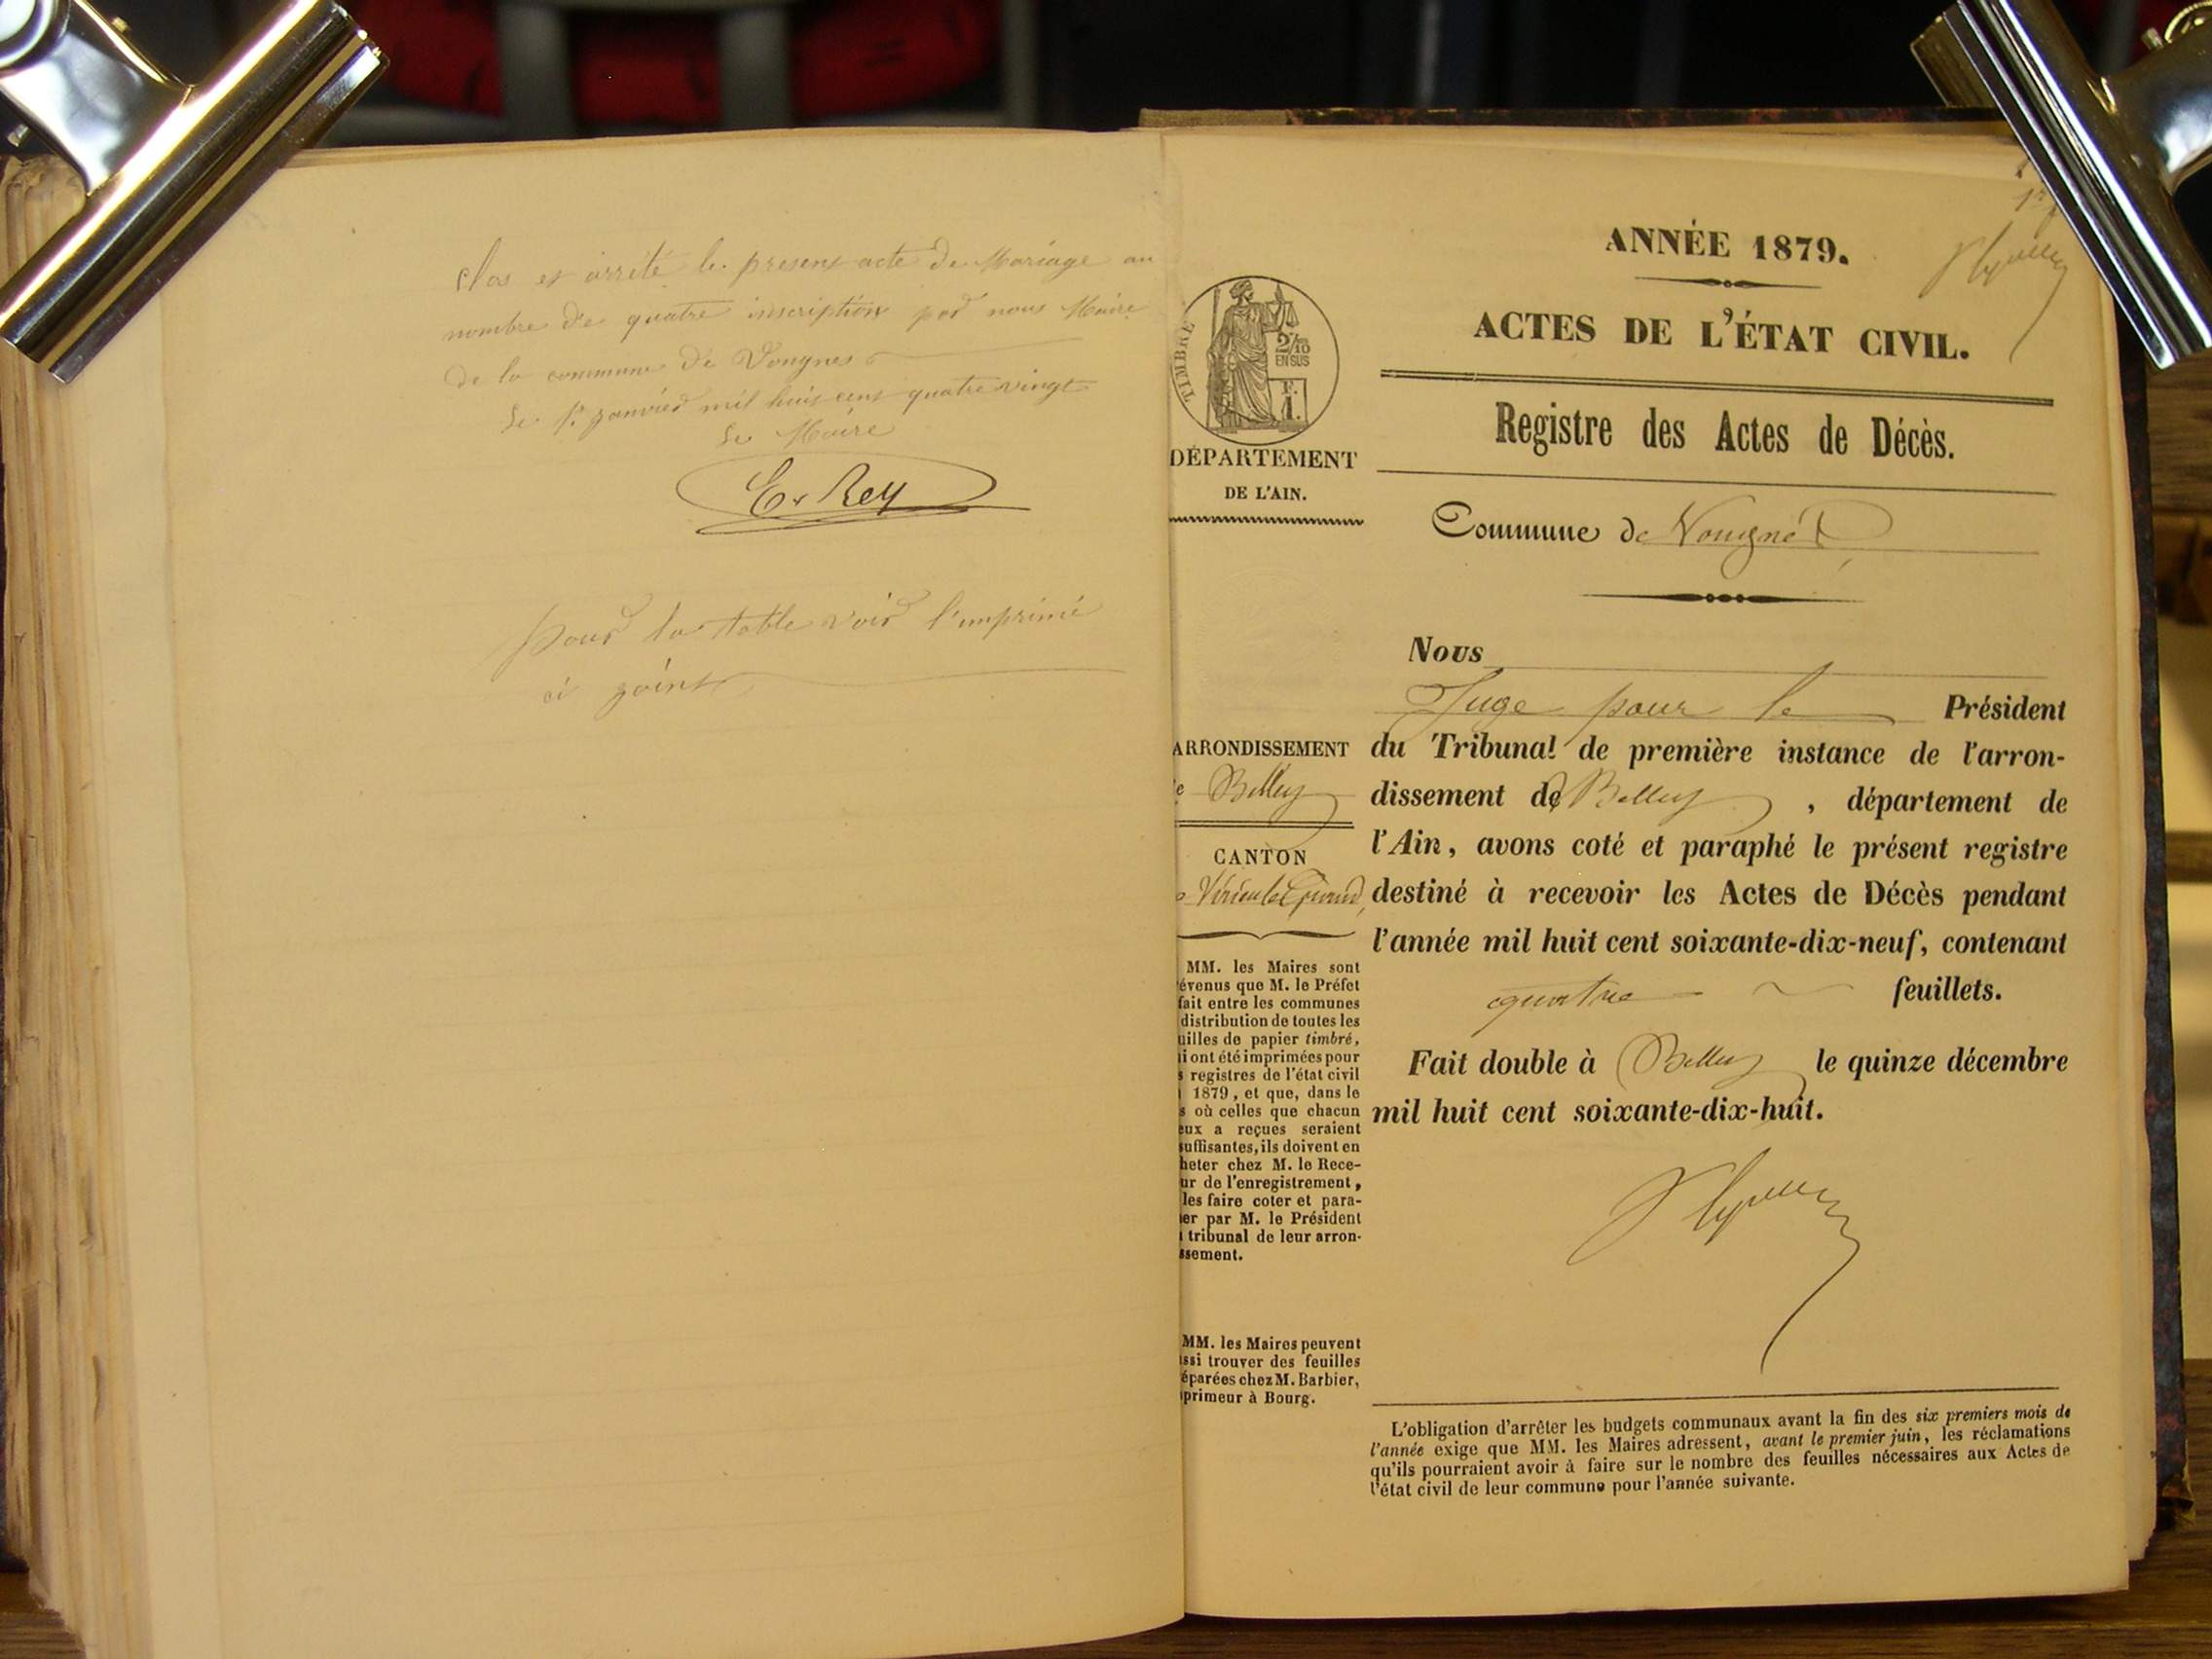 Clos et arrété le present acte de Mariage au
nombre de quatre inscription par nous Maire
de la commune de Vongnes
le 1er janvier mil huit cent quatre vingt
Le Maire
E. Rey
Pour la table voir l'imprimé
ci joint
1er
ANNÉE 1879.
ACTES DE L'ÉTAT CIVIL.
TIMBRE
2/10
EN SUS
F.
1.
DÉPARTEMENT
DE L'AIN.
Registre des Actes de Décès.
Commune de Vougnes
ARRONDISSEMENT
e Belley
CANTON
Virieu le Grand,
MM. les Maires sont
évenus que M. le Préfet
fait entre les communes
distribution de toutes les
uilles de papier timbré,
i ont été imprimées pour
s registres de l'état civil
1879, et que, dans le
s où celles que chacun
eux a reçues seraient
suffisantes, ils doivent en
heter chez M. le Rece-
ur de l'enregistrement,
les faire coter et para-
er par M. le Président
tribunal de leur arron-
ssement.
MM. les Maires peuvent
ssi trouver des feuilles
éparées chez M. Barbier,
primeur à Bourg.
Nous
Juge pour le Président
du Tribunal de première instance de l'arron-
dissement de Belley, département de
l'Ain, avons coté et paraphé le présent registre
destiné à recevoir les Actes de Décès pendant
l'année mil huit cent soixante-dix-neuf, contenant
quatre feuillets.
Fait double à Belley le quinze décembre
mil huit cent soixante-dix-huit.
L'obligation d'arrêter les budgets communaux avant la fin des six premiers mois de
l'année exige que MM. les Maires adressent, avant le premier juin, les réclamations
qu'ils pourraient avoir à faire sur le nombre des feuilles nécessaires aux Actes de
l'état civil de leur commune pour l'année suivante.